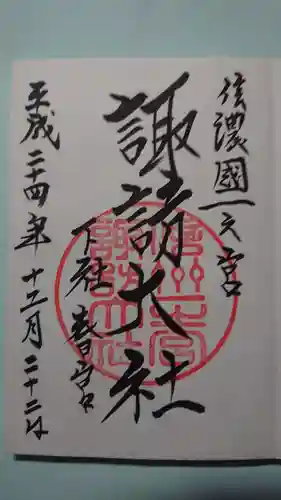 信濃國一之宮
諏訪大社
下社春宮
平成二十四年十二月二十二日